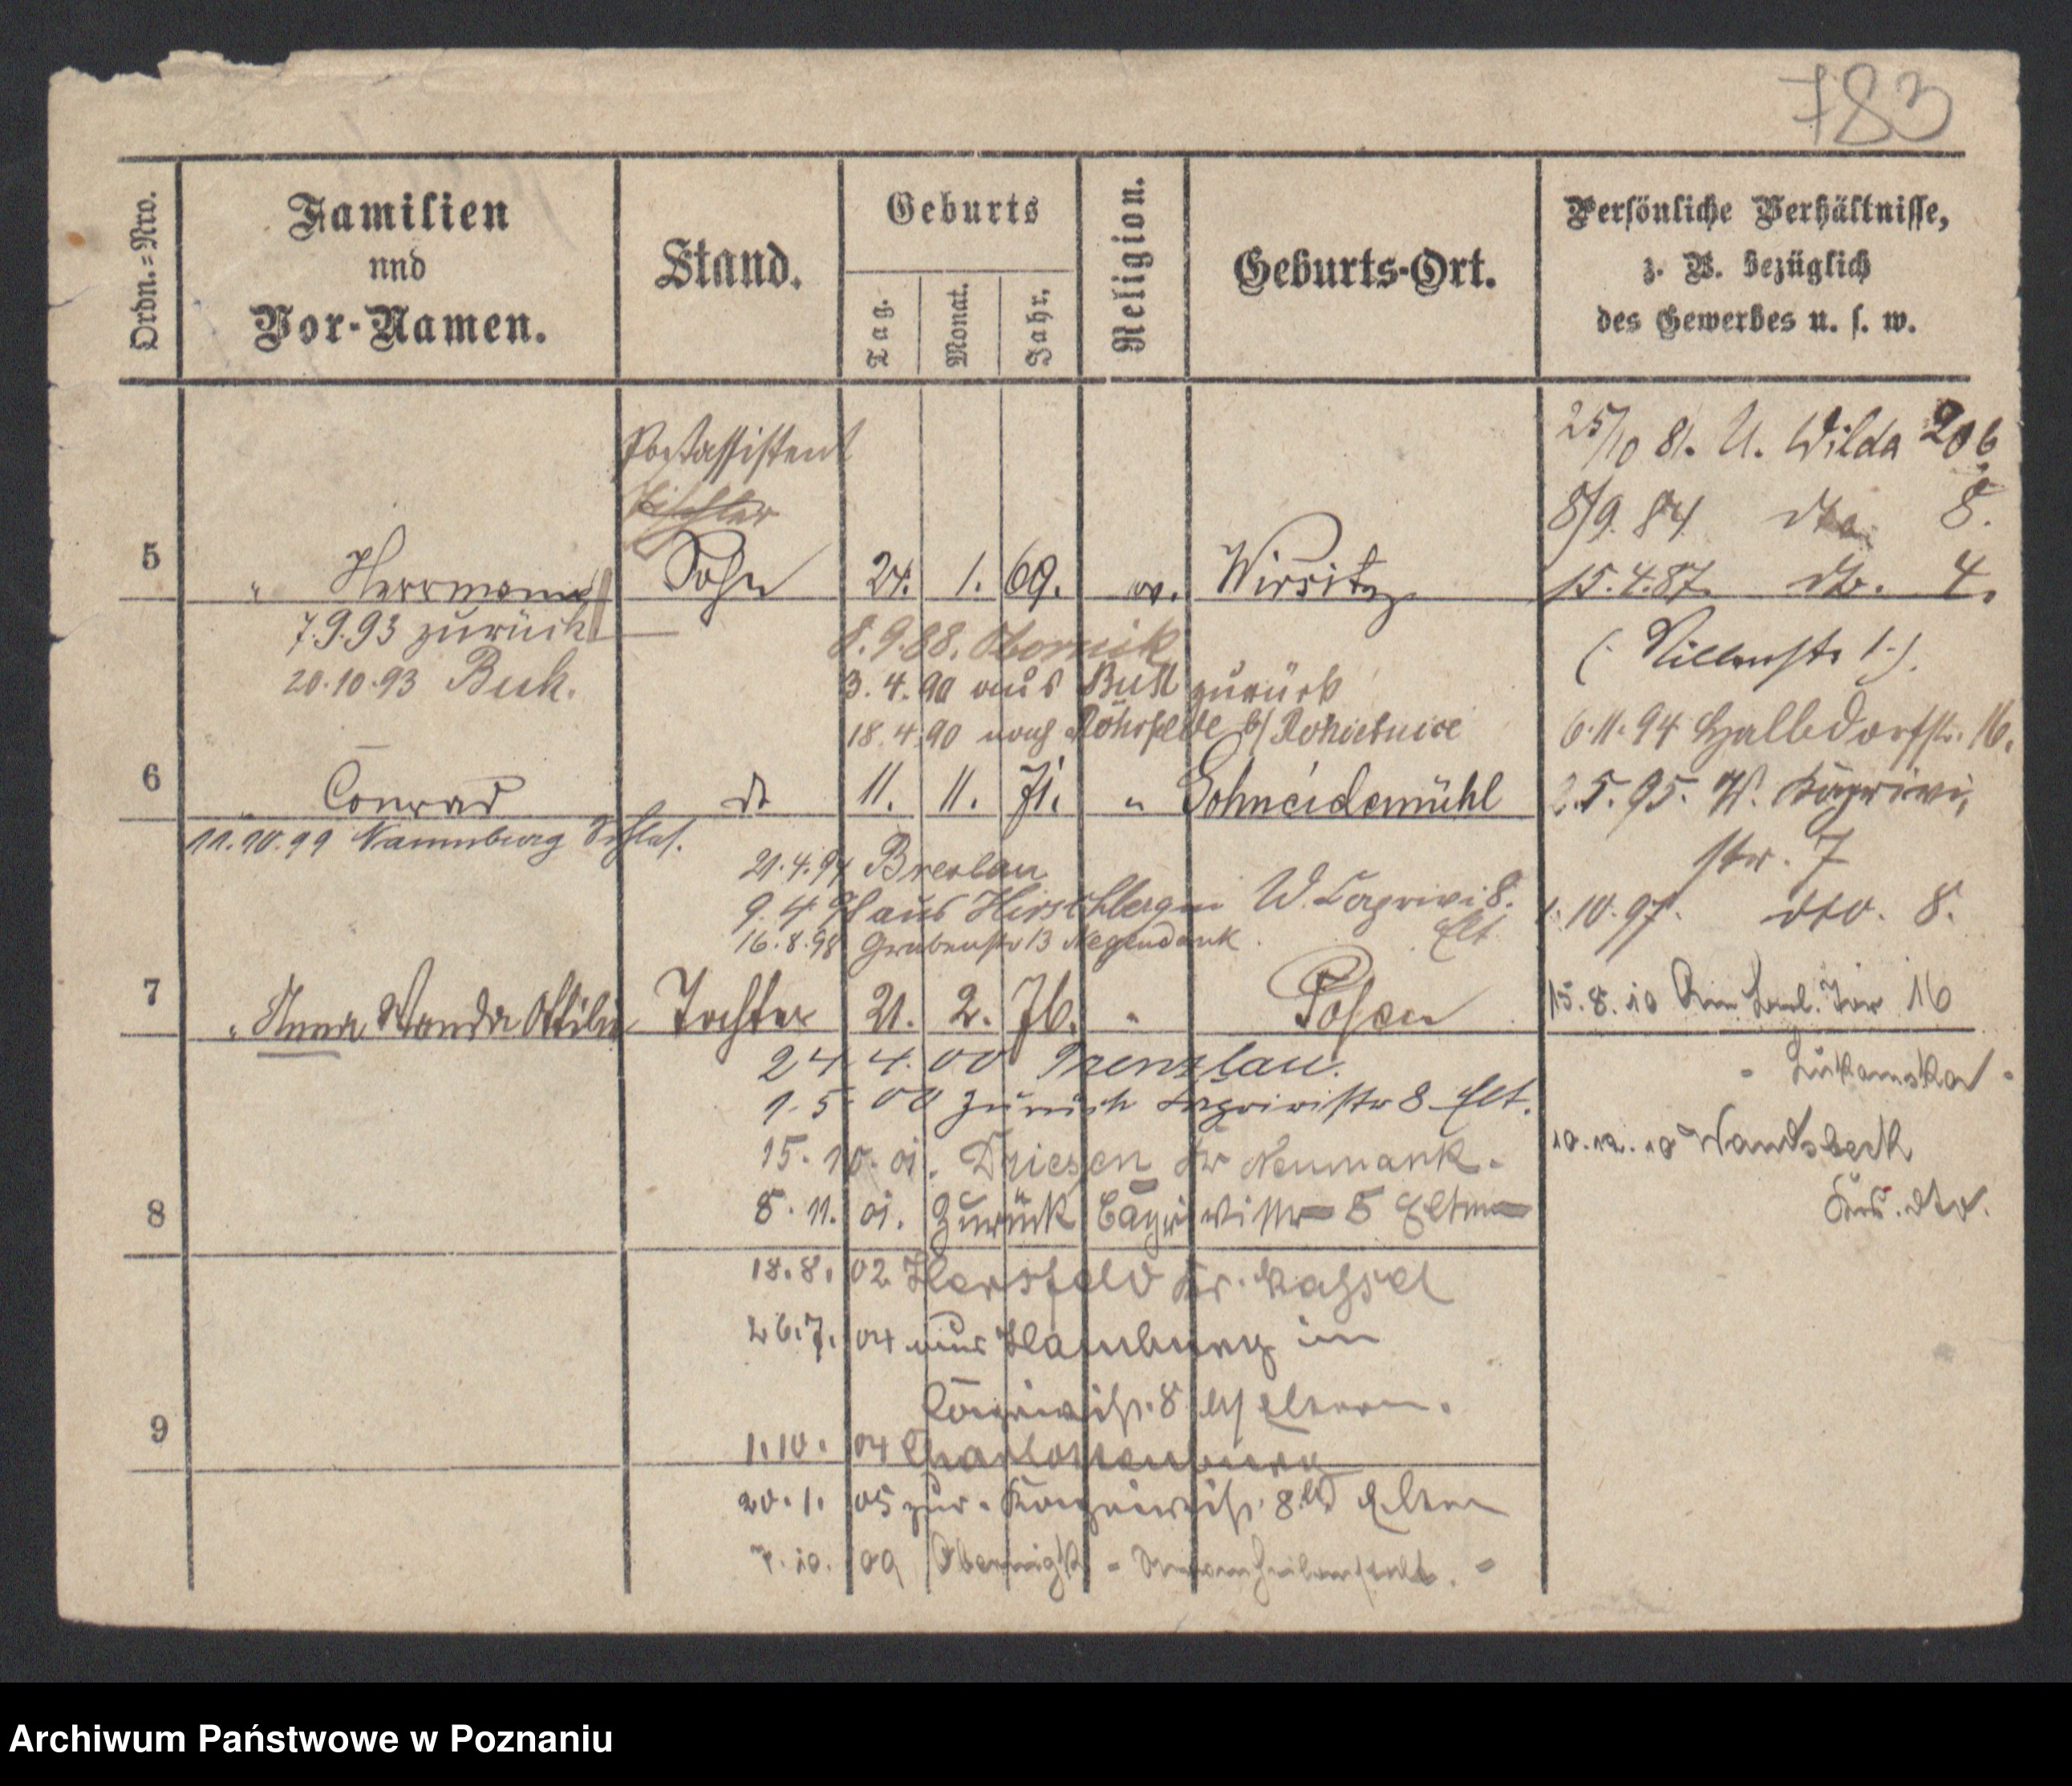 783
Ordn.=Nro.
Familien
und
Vor-Namen.
Stand.
Geburts
Tag.
Monat.
Jahr.
Religion.
Geburts-Ort.
Persönliche Verhältnisse,
z. B. bezüglich
des Gewerbes u. s. w.
25/10 81. U. Wilda 206
Postassistent
Tischler
8/9. 84 dto. 8.
5 " Herrmann Sohn 24. 1. 69. ev. Wirsitz 15.4.87. dto. 4.
7.9.93 zurück
8.9.88. Obornik
20.10.93 Buk.
3.4.90 aus Buk zurück
18.4.90 nach Rohrfelde b/ Rokietnice
6.11.94 Halbdorfstr. 16.
6 " Conrad dt 11. 11. 71. " Schneidemühl
2.5.95. W. Caprivi,
str. 7
11.10.99 Naumburg Schles.
21.4.94 Breslau
9.4.98 aus Hirschberg W. Caprivi 8.
Elt
16.8.98 Grabenstr 13 Negendank
1.10.97. dto. 8.
7 " Anna Wanda Ottilie Tochter 21. 2. 76. " Posen
15.8.10 Am Berl. Tor 16
24.4.00 Prenzlau.
1.5.00 zurück Caprivistr 8 Elt.
15.10.01. Driesen Kr Neumark.
10.12.10 Wandsbeck
8 8.11.01. Zurück Caprivistr 8 Eltern
dto.
18.8.02 Hersfeld Kr. Kassel
26.7.04 aus Hamburg in
Caprivistr. 8 b/ Eltern.
9
1.10.04 Charlottenburg
20.1.05 zur. Caprivistr. 8 b/ Eltern
7.10.09 Obernigk